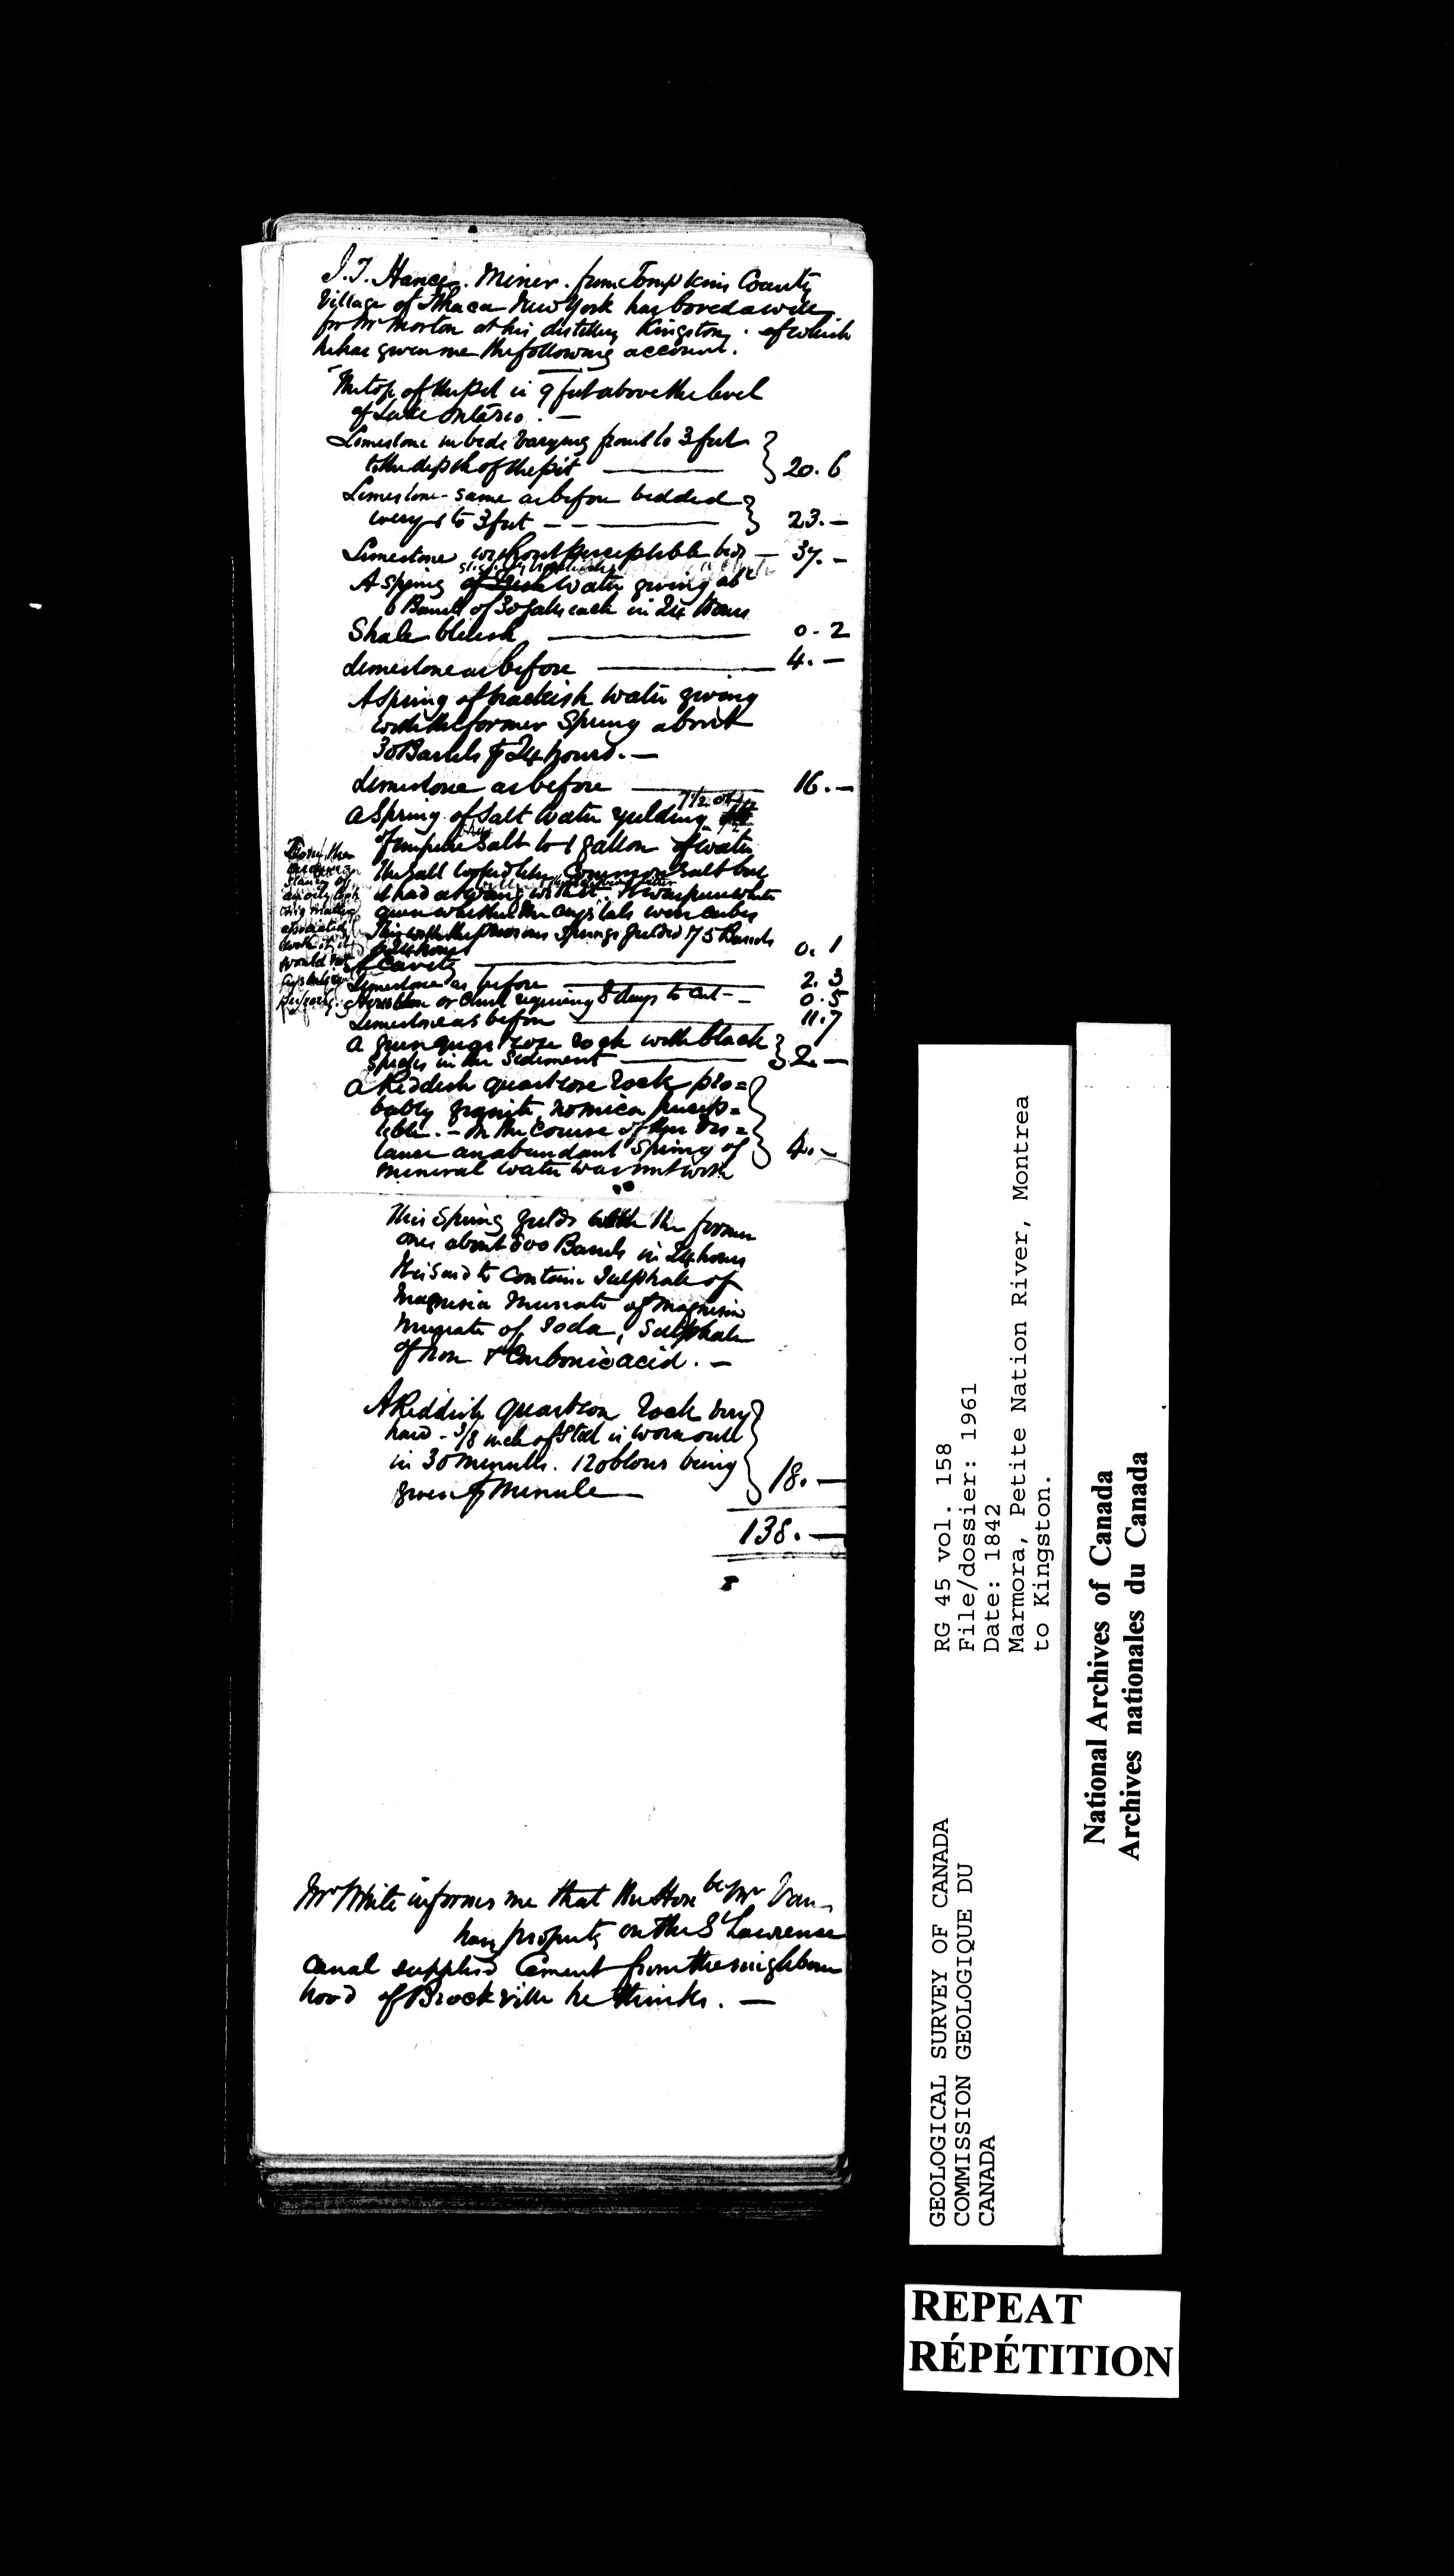 J. T. Hance. Miner. from Tompkins County
Village of Ithaca New York has bored a well
for Mr Morton at his distillery Kingston. of which
he has given me the following account.
The top of the pit is 9 feet above the level
of Lake Ontario. —
Limestone in beds varying from 1 to 3 feet
to the depth of the pit — 20. 6
Limestone - same as before bedded
every 1 to 3 feet — 23. —
Limestone without perceptible beds — 37. —
A spring of water giving abt
6 Barrels of 30 galls each in 24 hours
Shale bluish — 0. 2
Limestone as before — 4. —
A spring of brackish water giving
with the former Spring about
30 Barrels p 24 hours. —
Limestone as before — 16. —
a Spring of Salt water yielding 7 1/2 oz
of impure Salt to 1 gallon of water
The Salt looked like Common Salt but
it had a
the crystals were cubes
This with the previous springs yielded 175 Barrels
p 24 hours
A Cavity — 0. 1
Limestone as before — 2. 3
or Chert requiring 8 days to cut — 0. 5
Limestone as before — 11. 7
a quartzose rock with black
specks in the Sediment — 2. —
a Reddish quartzose rock pro=
bably granite, no mica percep=
tible. — In the course of this dis=
tance an abundant Spring of
mineral water was met with 4. —
This Spring yields with the former
ones about 800 Barrels in 24 hours
It is said to contain Sulphate of
Magnesia Muriate of Magnesia
Muriate of Soda, Sulphate
of Iron & Carbonic acid. —
A Reddish quartzose rock very
hard - 3/8 inch of Steel is worn out
in 30 minutes. 120 blows being
given p minute — 18. —
138. —
Mr White informs me that the Honble Mr
property on the St Lawrence
canal supplied Cement from the neighbour
hood of Brockville he thinks. —
GEOLOGICAL SURVEY OF CANADA
COMMISSION GEOLOGIQUE DU
CANADA
RG 45 vol. 158
File/dossier: 1961
Date: 1842
Marmora, Petite Nation River, Montrea
to Kingston.
National Archives of Canada
Archives nationales du Canada
REPEAT
RÉPÉTITION